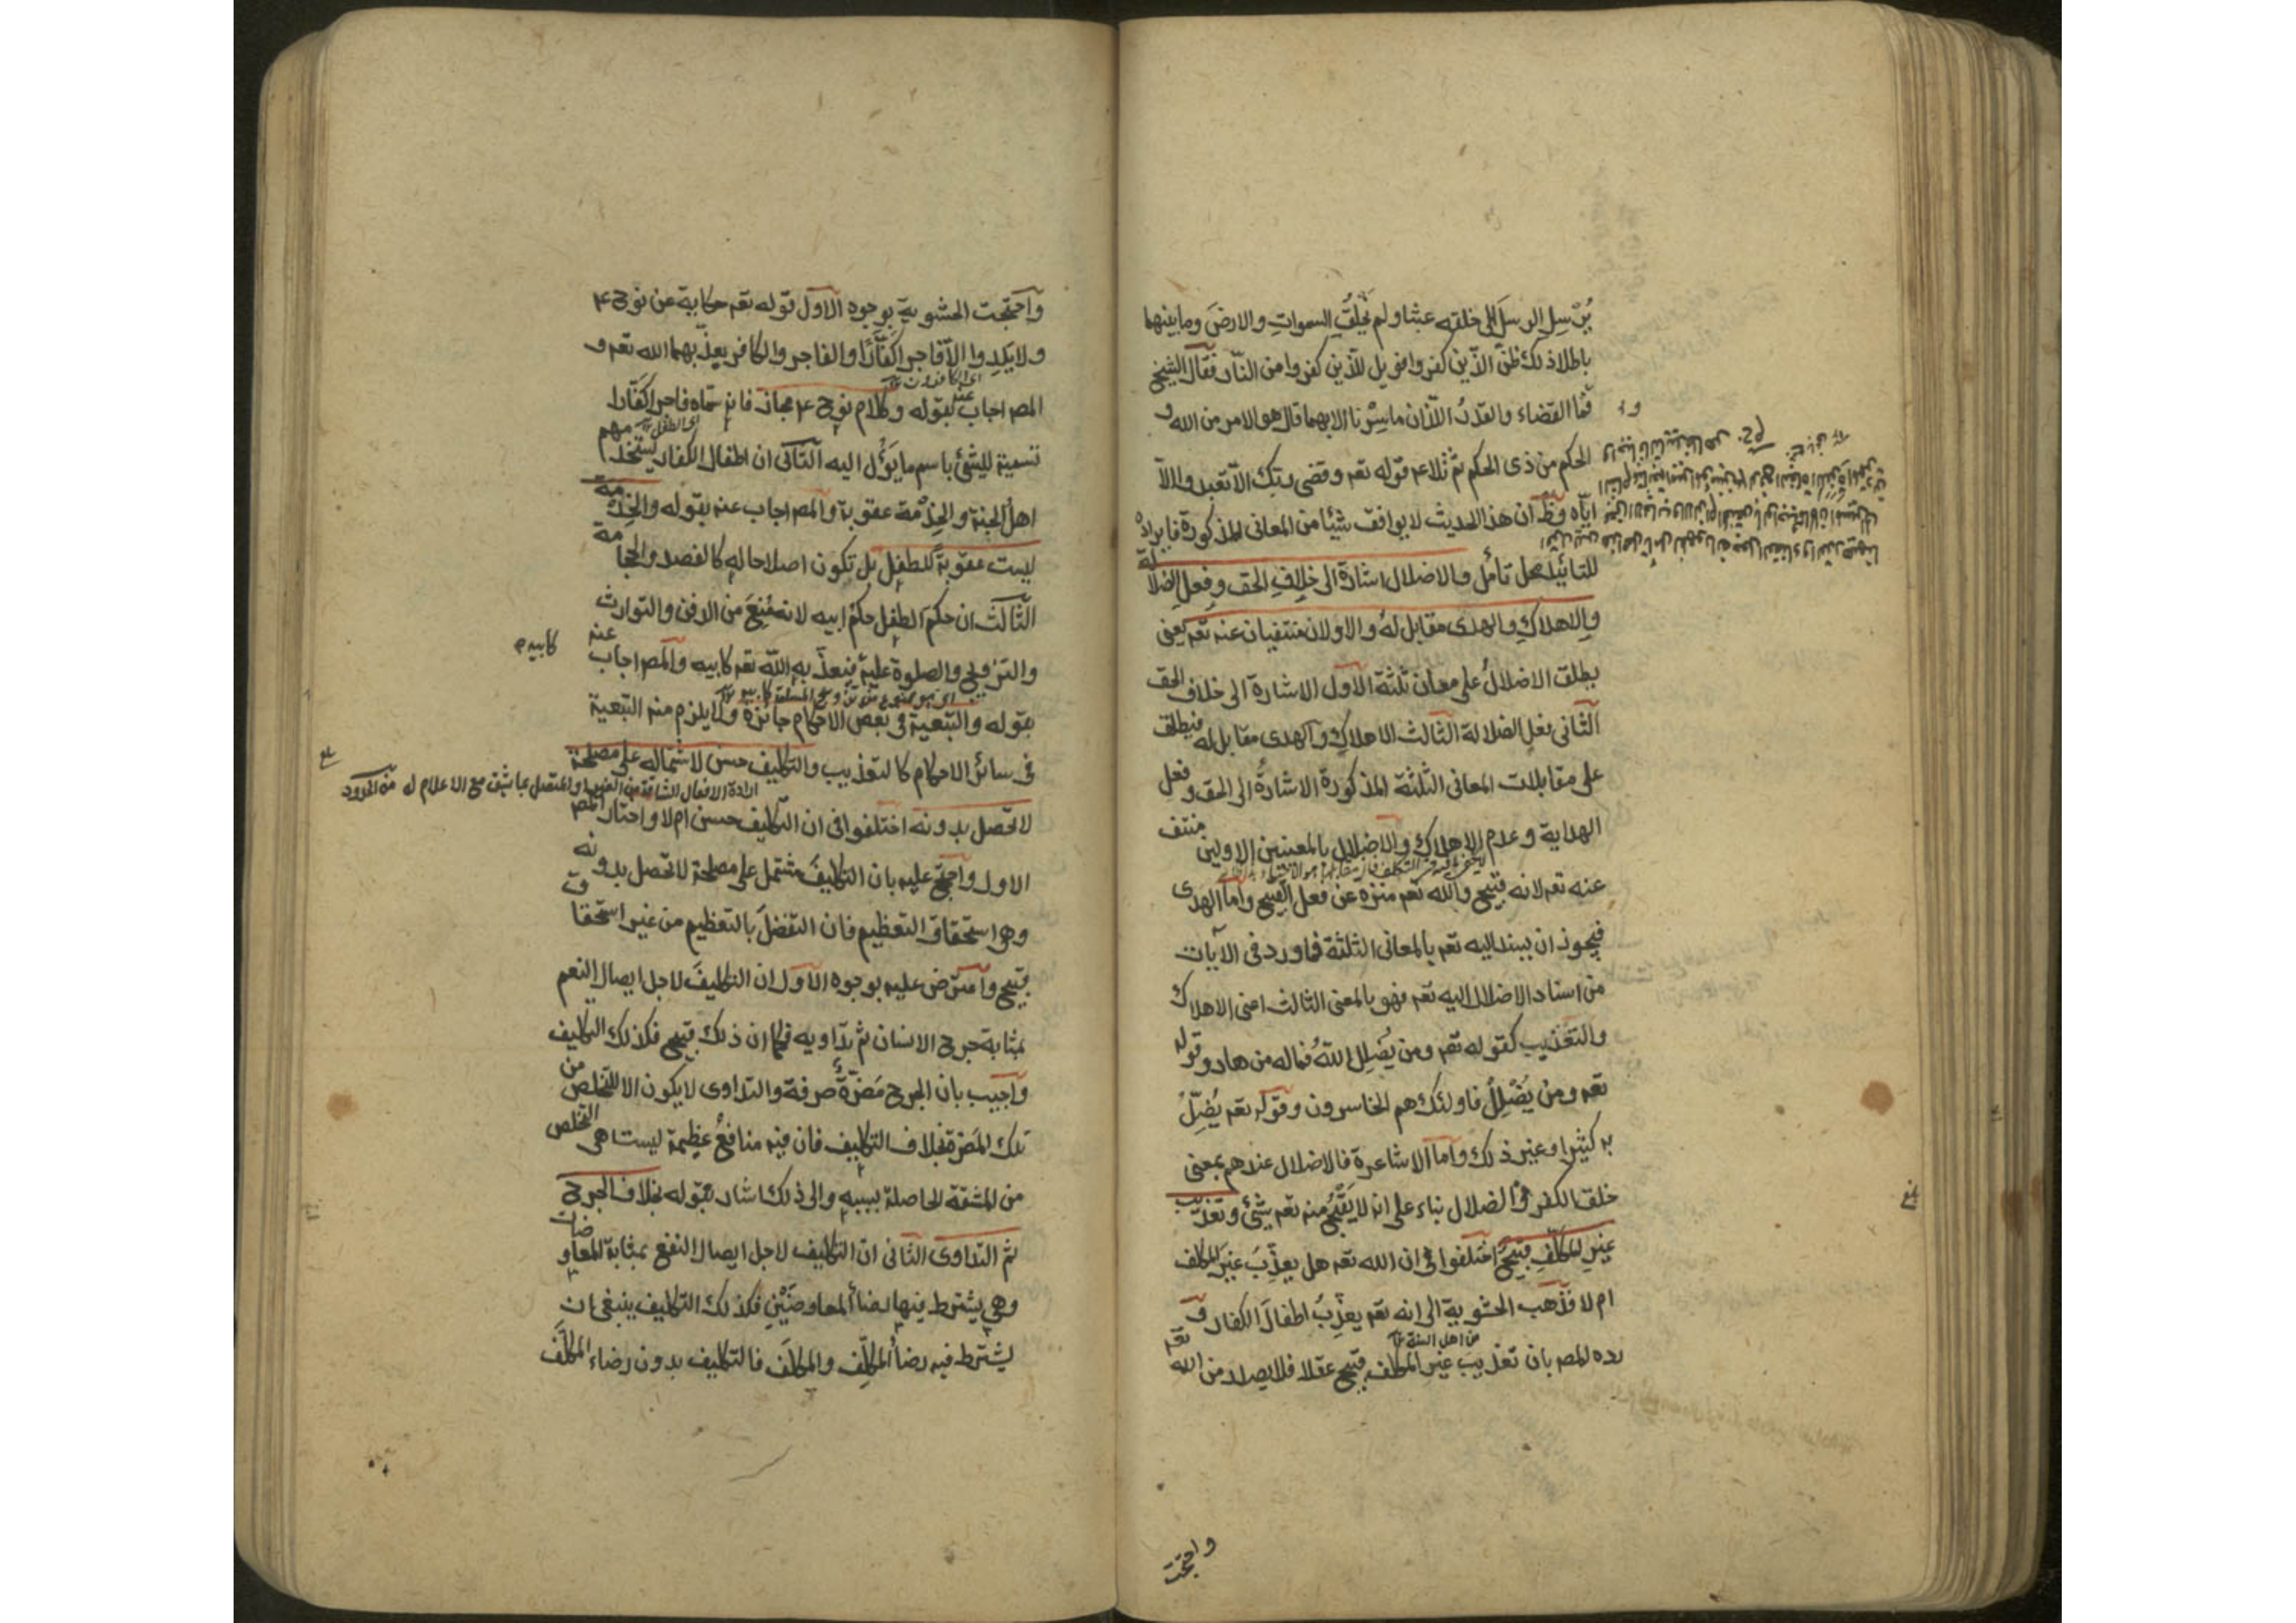 يُرْسِلِ الرسلَ الى خلقه عبثا ولم يَخلُقِ السموات والارضَ وما بينهما
باطلا ذلك ظنّ الذّين كفروا فويل للّذين كفروا من النّار فقال الشيخ
فما القضاء والقدرُ اللّذان ما سِرْنا الا بهما قال هو الامر من الله و
الحكم من ذى الحكم ثمّ تلا ٤م قوله تعم وقضى ربّك الّا تعبدوا الّا
ايّاه وظنّ ان هذا الحديث لا يوافق شيئا من المعانى المذكورة فايراده
للتائيد محل تأمّل والاضلال اشارة الى خلافِ الحق وفعلِ الضلالة
والاهلاكِ والهدى مقابل لهُ والاولان منتفيان عنه تعم يعنى
يطلق الاضلالُ على معان ثلثة الاول الاشارة الى خلاف الحق
الثانى فعل الضلالة الثالث الاهلاكِ والهدى مقابل له فيطلق
على مقابلات المعانى الثلثة المذكورة الاشارةُ الى الحق وفعلِ
الهداية وعدم الاهلاك والاضلال بالمعنيين الاولين منتف
عنه تعم لانه قبيح والله تعم منزه عن فعل القبيح واما الهدى
فيجوز ان يسند اليه تعم بالمعانى الثلثة فما ورد فى الآيات
من اسناد الاضلال اليه تعم فهو بالمعنى الثالث اعنى الاهلاك
والتعذيب كقوله تعم ومن يُضلِلِ اللّهُ فماله من هاد وقوله
تعم ومن يُضْلِلْ فاولئك هم الخاسرون وقوله تعم يُضِلّ
به كثيرا وغير ذلك واما الاشاعرة فالاضلال عندهم بمعنى
خلق الكفر والضلال بناء على انه لا يَقْبُحُ منه تعم شئ وتعذيب
غير المكلّف قبيحٌ اختلفوا فى ان الله تعم هل يعذّبَ غيرَ المكلف
ام لا فذهب الحشوية الى انه تعم يعذّبُ اطفالَ الكفار و
من اهل السنة
رده المصـ بان تعذيبَ غيرِ المكلف قبيح عقلا فلا يصدر من الله تعم
واحتجت
واحتجّت الحشوية بوجوه الاول قوله تعم حكاية عن نوح ٤م
ولا يَلِدوا الّا فاجرا كفّارًا والفاجر والكافر يعذّبهما الله تعم و
المصـ اجاب عنه بقوله وكلام نوح ٤م مجاز فانه سمّاه فاجرا كفّارا
تسمية للشئ باسم ما يَؤُل اليه الثانى ان اطفال الكفار يستخدمهم
اى الطفل
اهلُ الجنة والخِدْمة عقوبة والمصـ اجاب عنه بقوله والخدمة
ليست عقوبةً للطفل بل تكون اصلاحا له كالفصد والحجامة
الثالث ان حكم الطفل حكم ابيه لانه مُنِعَ من الدفن والتوارث
والتزويج والصلوة عليه فيعذّب به الله تعم كابيه والمصـ اجاب عنه
كابيه م
بقوله والتبعية فى بعض الاحكام جائزة ولا يلزم منه التبعية
فى سائر الاحكام كالتعذيب والتكليف حسن لاشتماله على مصلحة
لا تحصل بدونه اختلفوا فى ان التكليف حسن ام لا واختار المصـ
الاول واحتجّ عليه بان التكليفَ مشتمل على مصلحة لا تحصل بدونه
وهو استحقاق التعظيم فان التفضلَ بالتعظيم من غير استحقاق
قبيح واعترض عليه بوجوه الاول ان التكليفَ لاجل ايصال النعم
بمثابة جرح الانسان ثم تداويه فكما ان ذلك قبيح فكذلك التكليف
واجيب بان الجرح مَضرّةٌ صرفة والتداوى لا يكون الا للتخلص من
تلك المضرة بخلاف التكليف فان فيه منافعُ عظيمة ليست هى التخلص
من المشقة الحاصلة بسببه والى ذلك اشار بقوله بخلاف الجرح
ثمّ التداوى الثانى انّ التكليف لاجل ايصال النفع بمثابة المعاوضات
وهى يشترط فيها رضأ المعاوضَيْنِ فكذلك التكليف ينبغى ان
يشترط فيه رضأ المكلِّف والمكلَّف فالتكليف بدون رضاء المكلَّف